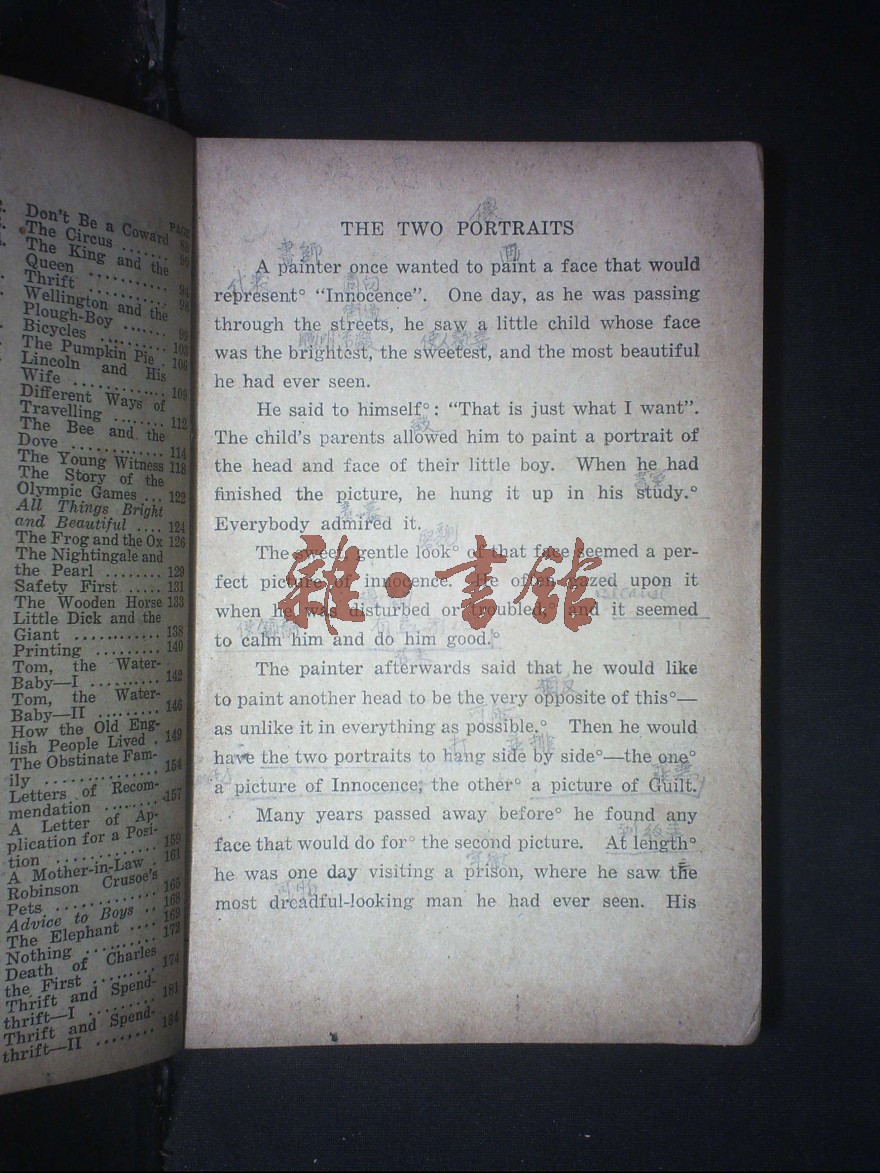 Don't Be a Coward 88
PAGE
The Circus ....... 90
The King and the
Queen .......... 94
Thrift ........... 98
Wellington and the
Plough-Boy ...... 99
Bicycles ......... 103
The Pumpkin Pie . 106
Lincoln and His
Wife ............ 109
Different Ways of
Travelling ....... 112
The Bee and the
Dove ............ 114
The Young Witness 118
The Story of the
Olympic Games ... 122
All Things Bright
and Beautiful .... 124
The Frog and the Ox 126
The Nightingale and
the Pearl ........ 129
Safety First ..... 131
The Wooden Horse 133
Little Dick and the
Giant ............ 138
Printing ......... 140
Tom, the Water-
Baby—I .......... 142
Tom, the Water-
Baby—II ......... 146
How the Old Eng-
lish People Lived . 149
The Obstinate Fam-
ily .............. 154
Letters of Recom-
mendation ........ 157
A Letter of Ap-
plication for a Posi-
tion ............. 159
A Mother-in-Law . 161
Robinson Crusoe's
Pets ............. 165
Advice to Boys .. 168
The Elephant .... 169
Nothing ......... 172
Death of Charles
the First ......... 174
Thrift and Spend-
thrift—I ......... 181
Thrift and Spend-
thrift—II ........ 184
像
THE TWO PORTRAITS
畫師 画
A painter once wanted to paint a face that would
代表
represent° “Innocence”. One day, as he was passing
through the streets, he saw a little child whose face
was the brightest, the sweetest, and the most beautiful
he had ever seen.
He said to himself°: “That is just what I want”.
The child's parents allowed him to paint a portrait of
the head and face of their little boy. When he had
畫室
finished the picture, he hung it up in his study.°
Everybody admired it.
The sweet, gentle look° of that face seemed a per-
fect picture of innocence. He often gazed upon it
when he was disturbed or troubled,° and it seemed
to calm him and do him good.°
The painter afterwards said that he would like
相反
to paint another head to be the very opposite of this°—
可能
as unlike it in everything as possible.° Then he would
have the two portraits to hang side by side°—the one°
a picture of Innocence; the other° a picture of Guilt.
Many years passed away before° he found any
face that would do for° the second picture. At length°
he was one day visiting a prison, where he saw the
可怕
most dreadful-looking man he had ever seen. His
雜·書館